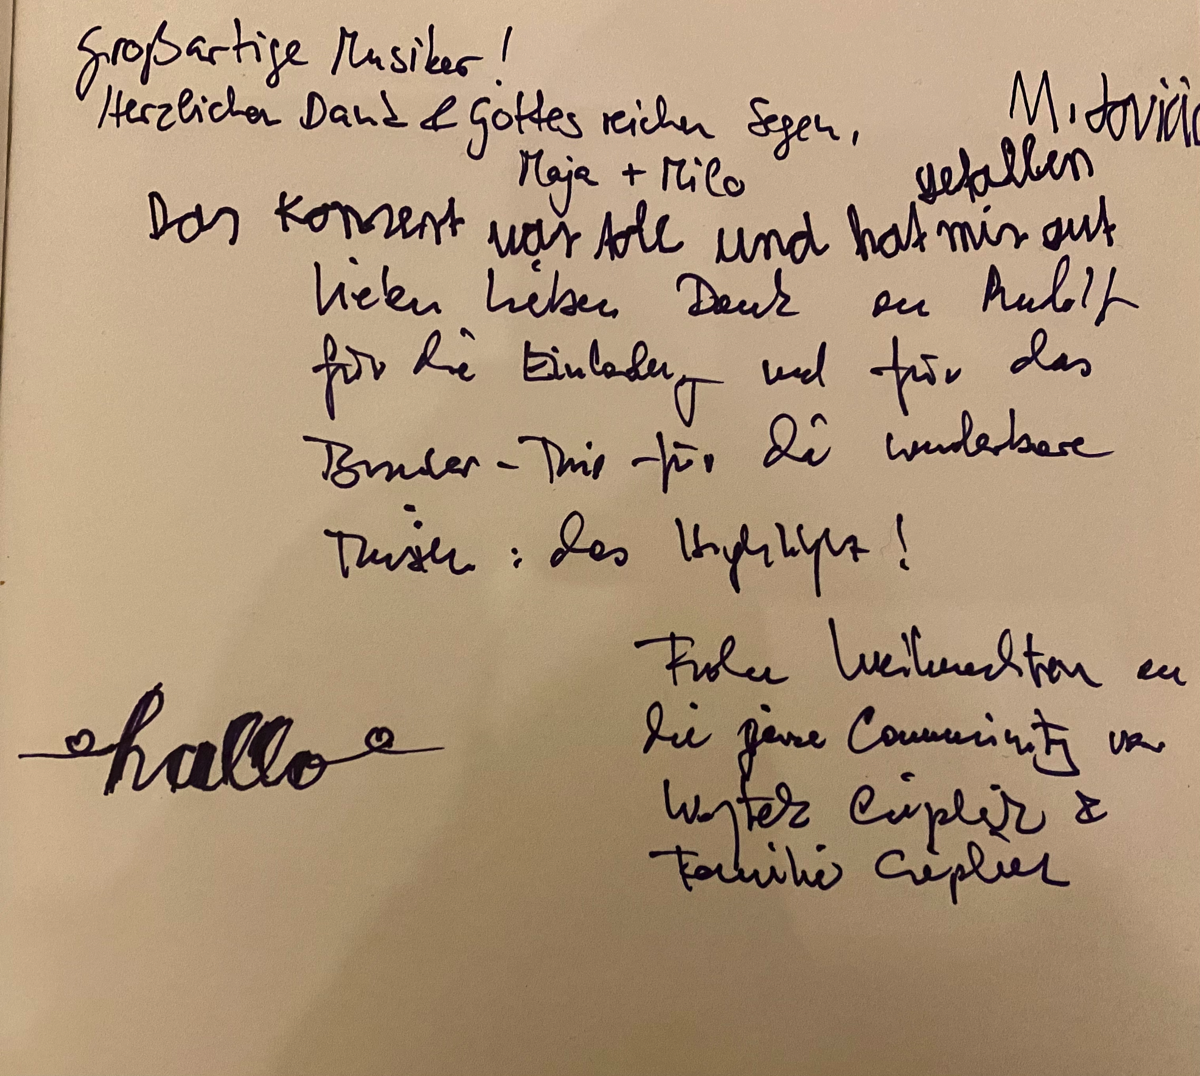 Großartige Musiker!
Herzlichen Dank & Gottes reichen Segen,
Maja + Milo
M. Jovicic
gefallen
Das Konzert war toll und hat mir gut
Lieben lieben Dank an Rudolf
für die Einladung und für das
Bruder-Trio für die wunderbare
das Highlight!
Frohe Weihnachten an
die ganze Community von
&
Familie
hallo